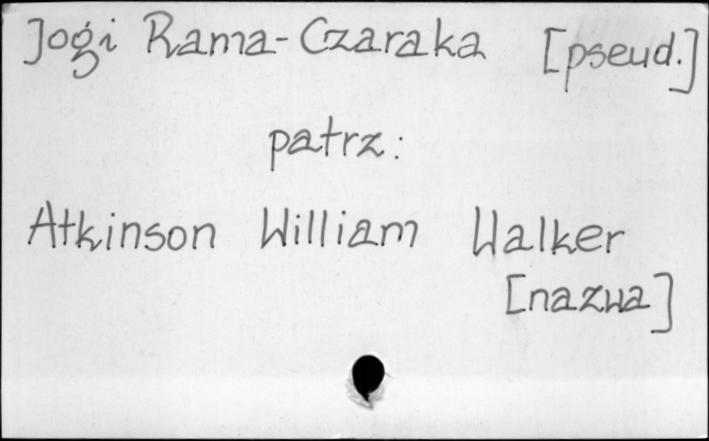 Jogi Rama-Czaraka [pseud.]
patrz:
Atkinson William Walker
[nazwa]